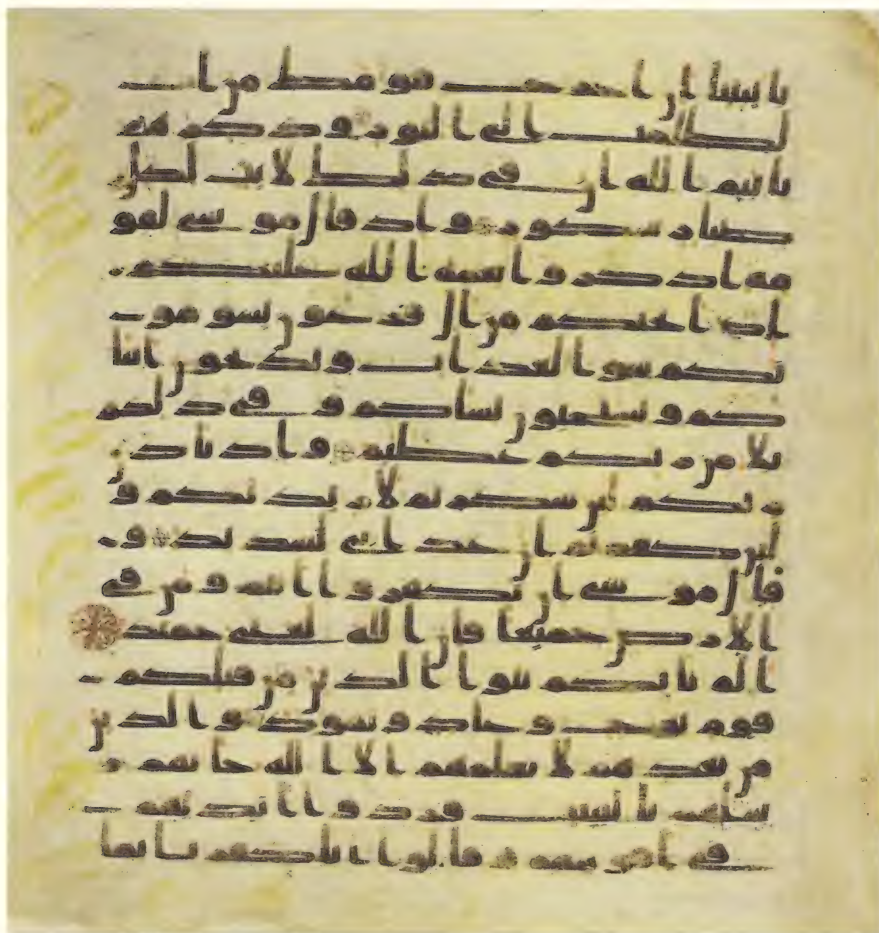 بايتنا ان اخرج قومك من ا
لظلمت الى النور و ذكر هم
باييم الله ان في ذلك لايت لكل
صبار شكور و اذ قال موسى لقو
مه اذكروا نعمة الله عليكم
اذ انجيكم من ال فرعون يسومو
نكم سوا العذاب و يذبحون ابنا
كم و يستحيون نساكم و في ذلكم
بلا من ربكم عظيم و اذ تاذن
ربكم لئن شكرتم لازيدنكم و
لئن كفرتم ان عذابي لشديد و
قال موسى ان تكفروا انتم و من في
الارض جميعا فان الله لغني حميد
الم ياتكم نبوا الذين من قبلكم
قوم نوح و عاد و ثمود و الذين
من بعدهم لا يعلمهم الا الله جاتهم
رسلهم بالبينت فردوا ايديهم
في افوههم و قالوا انا كفرنا بما